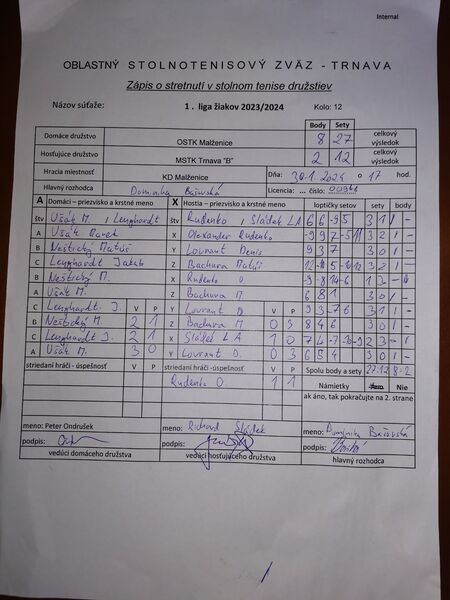 Internal
OBLASTNÝ STOLNOTENISOVÝ ZVÄZ - TRNAVA
Zápis o stretnutí v stolnom tenise družstiev
Názov súťaže: 1 . liga žiakov 2023/2024 Kolo: 12
Body Sety
Domáce družstvo OSTK Malženice 8 27 celkový výsledok
Hosťujúce družstvo MSTK Trnava "B" 2 12 celkový výsledok
Hracia miestnosť KD Malženice Dňa: 30.1.2024 o 17 hod.
Hlavný rozhodca Dominika Bašovská Licencia ... číslo:
A Domáci – priezvisko a krstné meno X Hostia – priezvisko a krstné meno loptičky setov sety body
štv Ušák M., Lenghardt štv Rudenko, Sládek LA 6 6 -9 5 3 1 1 -
A Ušák Marek X Olexander Rudenko 3 2 1 -
B Neštický Matúš Y Lovrant Denis 9 3 7 3 0 1 -
C Lenghardt Jakub Z Bachura Matúš 3 2 1 -
B Neštický M. X Rudenko O 1 3 - 1
A Ušák M. Z Bachura M. 6 8 1 3 0 1 -
C Lenghardt J. V P Y Lovrant D V P 9 3 -7 6 3 1 1 -
B Neštický M. 2 1 Z Bachura M 0 3 8 4 6 3 0 1 -
C Lenghardt J. 2 1 X Sládek LA 1 0 2 3 - 1
A Ušák M. 3 0 Y Lovrant D. 0 3 6 5 4 3 0 1 -
striedaní hráči - úspešnosť V P striedaní hráči - úspešnosť V P Spolu body a sety 27:12 8-2
Rudenko O 1 1 Námietky Nie
ak áno, tak pokračujte na 2. strane
meno: Peter Ondrušek meno: Richard Sládek meno: Dominika Bašovská
podpis: podpis: podpis:
vedúci domáceho družstva vedúci hosťujúceho družstva hlavný rozhodca